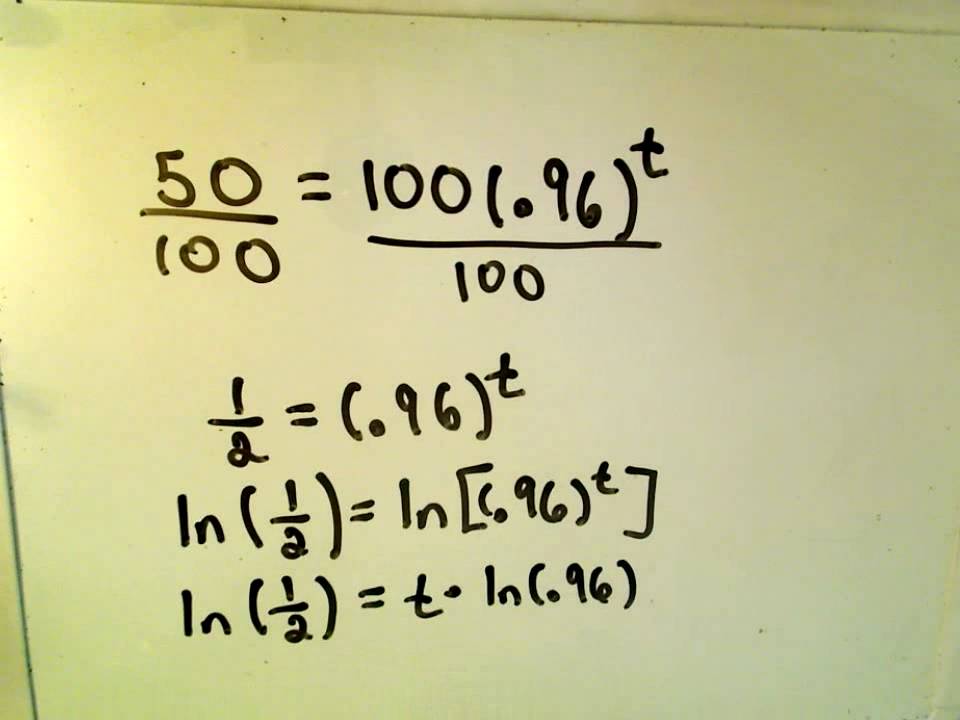 50/100 = 100(.96)^t/100
1/2 = (.96)^t
ln(1/2) = ln[(.96)^t]
ln(1/2) = t · ln(.96)